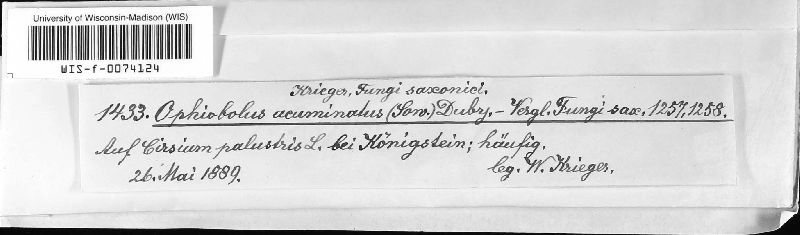 University of Wisconsin-Madison (WIS)
WIS-f-0074124
Krieger, Fungi saxonici.
1433. Ophiobolus acuminatus (Sow.) Duby. – Vergl. Fungi sax. 1257, 1258.
Auf Cirsium palustris L. bei Königstein; häufig.
26. Mai 1889. leg. W. Krieger.